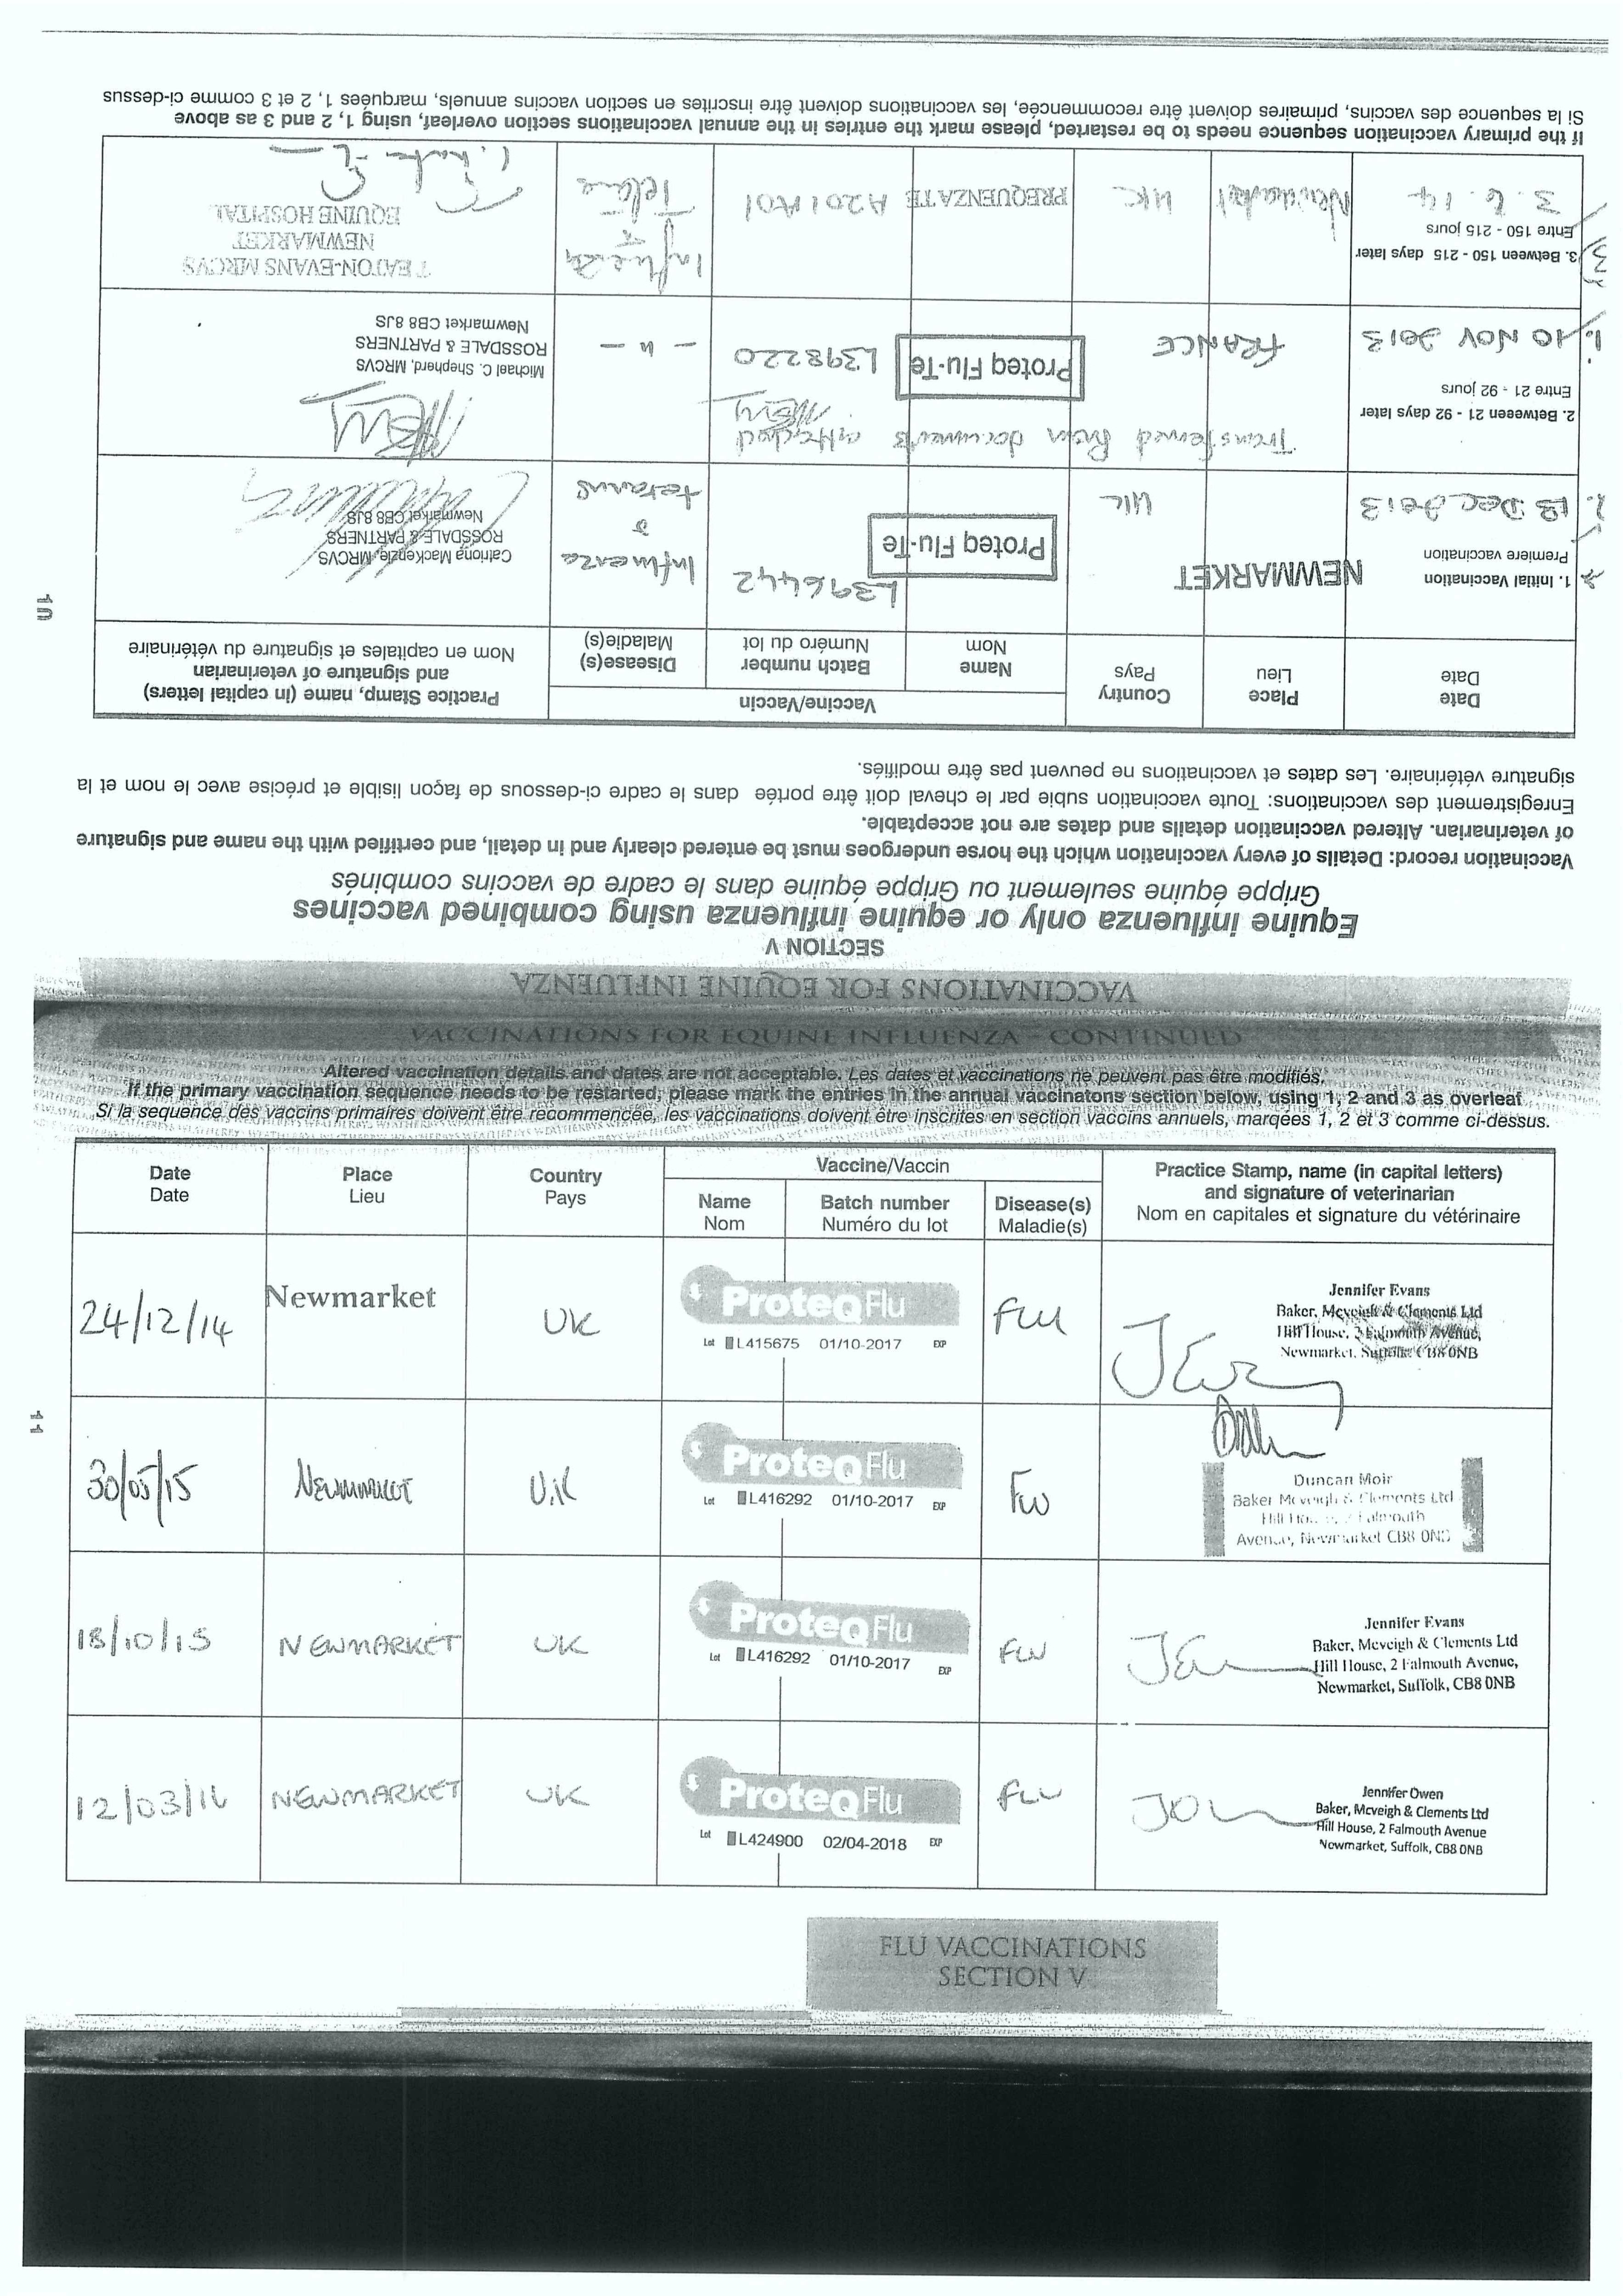 10
VACCINATIONS FOR EQUINE INFLUENZA
SECTION V
Equine influenza only or equine influenza using combined vaccines
Grippe équine seulement ou Grippe équine dans le cadre de vaccins combinés
Vaccination record: Details of every vaccination which the horse undergoes must be entered clearly and in detail, and certified with the name and signature
of veterinarian. Altered vaccination details and dates are not acceptable.
Enregistrement des vaccinations: Toute vaccination subie par le cheval doit être portée dans le cadre ci-dessous de façon lisible et précise avec le nom et la
signature vétérinaire. Les dates et vaccinations ne peuvent pas être modifiés.
Date
Date
Place
Lieu
Country
Pays
Vaccine/Vaccin
Name
Nom
Batch number
Numéro du lot
Disease(s)
Maladie(s)
Practice Stamp, name (in capital letters)
and signature of veterinarian
Nom en capitales et signature du vétérinaire
1. Initial Vaccination
Premiere vaccination
2. 13 Dec 2013
NEWMARKET
UK
Proteq Flu-Te
L396442
Influenza
&
tetanus
Catriona Mackenzie, MRCVS
ROSSDALE & PARTNERS
Newmarket CB8 8JS
Transferred from documents attached
2. Betweeen 21 - 92 days later
Entre 21 - 92 jours
1. 10 NOV 2013
FRANCE
Proteq Flu-Te
L398220
- u -
Michael C. Shepherd, MRCVS
ROSSDALE & PARTNERS
Newmarket CB8 8JS
3. Between 150 - 215 days later
Entre 150 - 215 jours
3
3. 6. 14
Newmarket
UK
PREQUENZA TE
A201A01
Influenza
+
Tetanus
T EATON-EVANS MRCVS
NEWMARKET
EQUINE HOSPITAL
If the primary vaccination sequence needs to be restarted, please mark the entries in the annual vaccinations section overleaf, using 1, 2 and 3 as above
Si la sequence des vaccins, primaires doivent être recommencée, les vaccinations doivent être inscrites en section vaccins annuels, marquées 1, 2 et 3 comme ci-dessus
VACCINATIONS FOR EQUINE INFLUENZA - CONTINUED
Altered vaccination details and dates are not acceptable. Les dates et vaccinations ne peuvent pas être modifiés.
If the primary vaccination sequence needs to be restarted, please mark the entries in the annual vaccinatons section below, using 1, 2 and 3 as overleaf
Si la sequence des vaccins primaires doivent être recommencée, les vaccinations doivent être inscrites en section vaccins annuels, marqées 1, 2 et 3 comme ci-dessus.
Date
Date
Place
Lieu
Country
Pays
Vaccine/Vaccin
Name
Nom
Batch number
Numéro du lot
Disease(s)
Maladie(s)
Practice Stamp, name (in capital letters)
and signature of veterinarian
Nom en capitales et signature du vétérinaire
24/12/14
Newmarket
UK
ProteqFlu
Lot L415675 01/10-2017 EXP
FLU
Jennifer Evans
Baker, Mcveigh & Clements Ltd
Hill House, 2 Falmouth Avenue,
Newmarket, Suffolk, CB8 0NB
11
30/05/15
NEWMARKET
U.K
ProteqFlu
Lot L416292 01/10-2017 EXP
FLU
Duncan Moir
Baker Mcveigh & Clements Ltd
Hill House, 2 Falmouth
Avenue, Newmarket CB8 0NB
18/10/15
NEWMARKET
UK
ProteqFlu
Lot L416292 01/10-2017 EXP
FLU
Jennifer Evans
Baker, Mcveigh & Clements Ltd
Hill House, 2 Falmouth Avenue,
Newmarket, Suffolk, CB8 0NB
12/03/16
NEWMARKET
UK
ProteqFlu
Lot L424900 02/04-2018 EXP
FLU
Jennifer Owen
Baker, Mcveigh & Clements Ltd
Hill House, 2 Falmouth Avenue
Newmarket, Suffolk, CB8 0NB
FLU VACCINATIONS
SECTION V